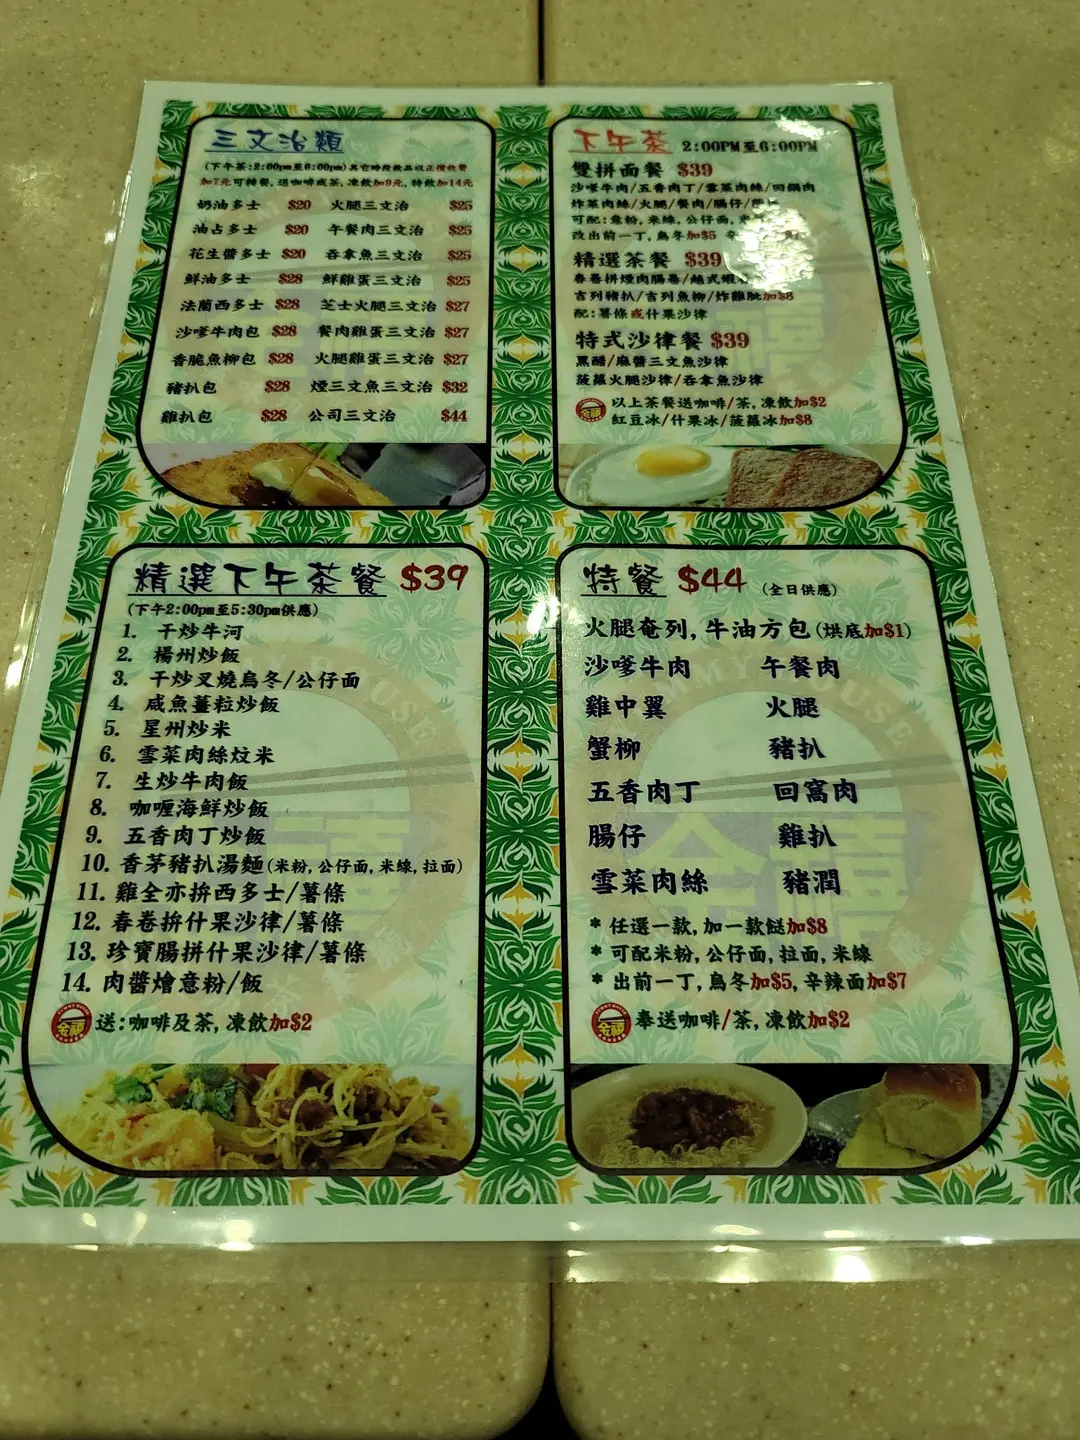 三文治類
(下午茶:2:00pm至6:00pm)其它時段飲品以正價收費
加7元可轉餐,送咖啡或茶,凍飲加9元,特飲加14元
奶油多士 $20 火腿三文治 $25
油占多士 $20 午餐肉三文治 $25
花生醬多士 $20 吞拿魚三文治 $25
鮮油多士 $28 鮮雞蛋三文治 $25
法蘭西多士 $28 芝士火腿三文治 $27
沙嗲牛肉包 $28 餐肉雞蛋三文治 $27
香脆魚柳包 $28 火腿雞蛋三文治 $27
豬扒包 $28 煙三文魚三文治 $32
雞扒包 $28 公司三文治 $44
下午茶 2:00PM至6:00PM
雙拼面餐 $39
沙嗲牛肉/五香肉丁/雪菜肉絲/回鍋肉
炸菜肉絲/火腿/餐肉/腸仔/
可配:意粉,米線,公仔面,
改出前一丁,烏冬加$5
精選茶餐 $39
春卷拼煙肉腸卷/越式蝦
吉列豬扒/吉列魚柳/炸雞肶加$8
配:薯條或什果沙律
特式沙律餐 $39
黑醋/麻醬三文魚沙律
菠蘿火腿沙律/吞拿魚沙律
金禧 以上茶餐送咖啡/茶,凍飲加$2
紅豆冰/什果冰/菠蘿冰加$8
精選下午茶餐 $39
(下午2:00pm至5:30pm供應)
1. 干炒牛河
2. 楊州炒飯
3. 干炒叉燒烏冬/公仔面
4. 咸魚薑粒炒飯
5. 星州炒米
6. 雪菜肉絲炆米
7. 生炒牛肉飯
8. 咖喱海鮮炒飯
9. 五香肉丁炒飯
10. 香茅豬扒湯麵(米粉,公仔面,米線,拉面)
11. 雞全亦拚西多士/薯條
12. 春卷拚什果沙律/薯條
13. 珍寶腸拼什果沙律/薯條
14. 肉醬燴意粉/飯
金禧 送:咖啡及茶,凍飲加$2
特餐 $44 (全日供應)
火腿奄列,牛油方包(烘底加$1)
沙嗲牛肉 午餐肉
雞中翼 火腿
蟹柳 豬扒
五香肉丁 回窩肉
腸仔 雞扒
雪菜肉絲 豬潤
* 任選一款,加一款餸加$8
* 可配米粉,公仔面,拉面,米線
* 出前一丁,烏冬加$5,辛辣面加$7
金禧 奉送咖啡/茶,凍飲加$2